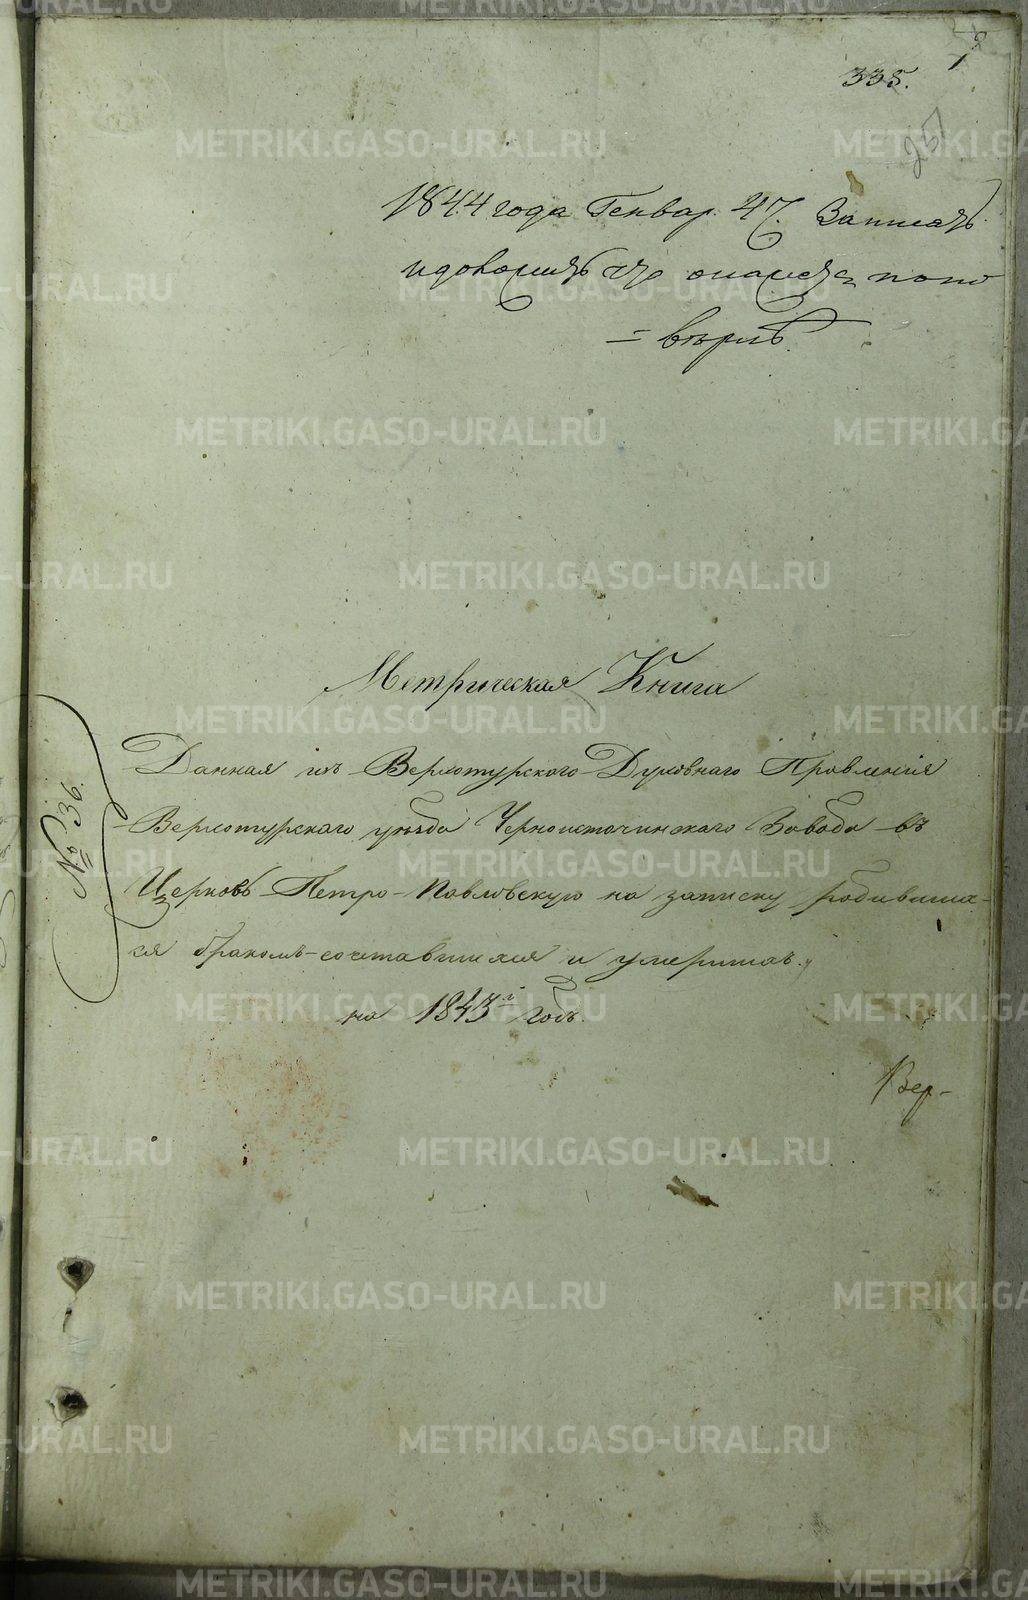 335.
237
1844 года Генвар. 27. Записать
и доложить что оная
= вѣрить.
Метрическая Книга
Данная изъ Верхотурского Духовнаго Правления
Верхотурскаго уѣзда Черноисточинскаго Завода въ
Церковь Петро-Павловскую на записку родивших-
ся бракомъ-сочетавшихся и умершихъ.
на 1843й годъ.
№ 36.
Вер-
METRIKI.GASO-URAL.RU